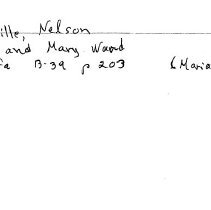 ille, Nelson
and Mary Ward
fa B-39 p 203 & Maria